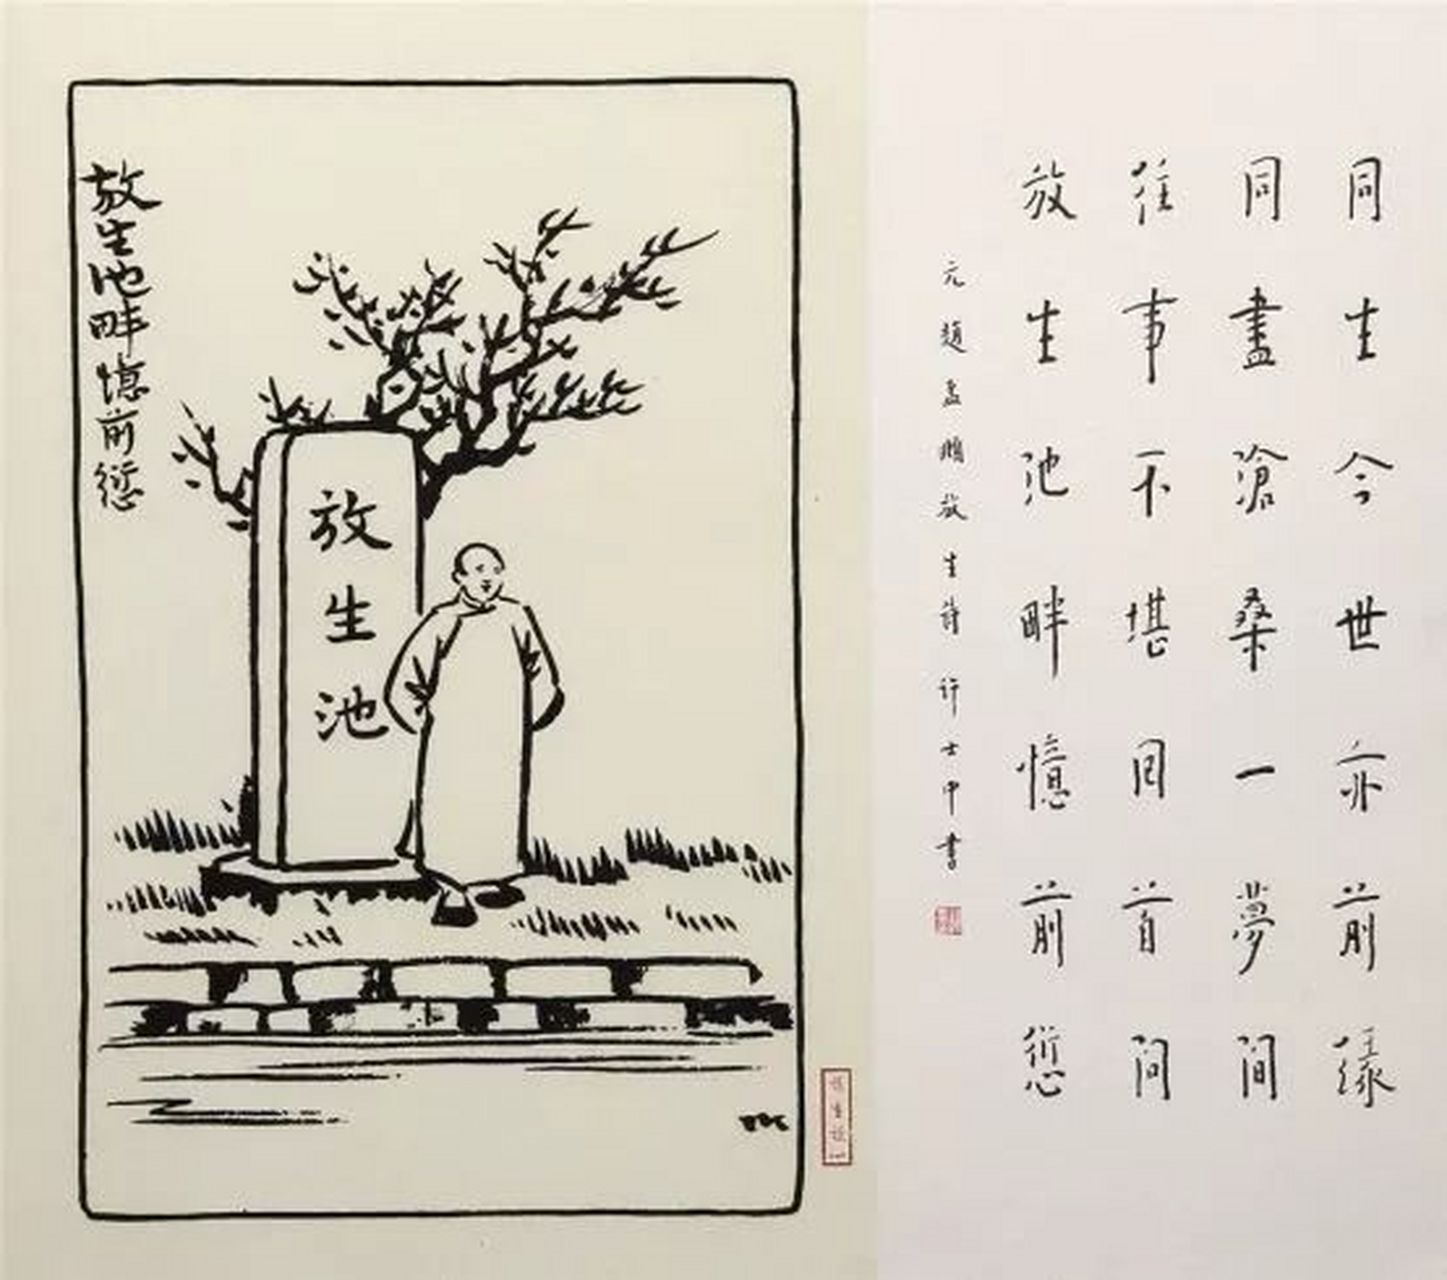 放生池畔憶前愆
放生池
同生今世亦前緣
同盡滄桑一夢間
往事不堪回首問
放生池畔憶前愆
元趙孟頫放生詩 許士中書